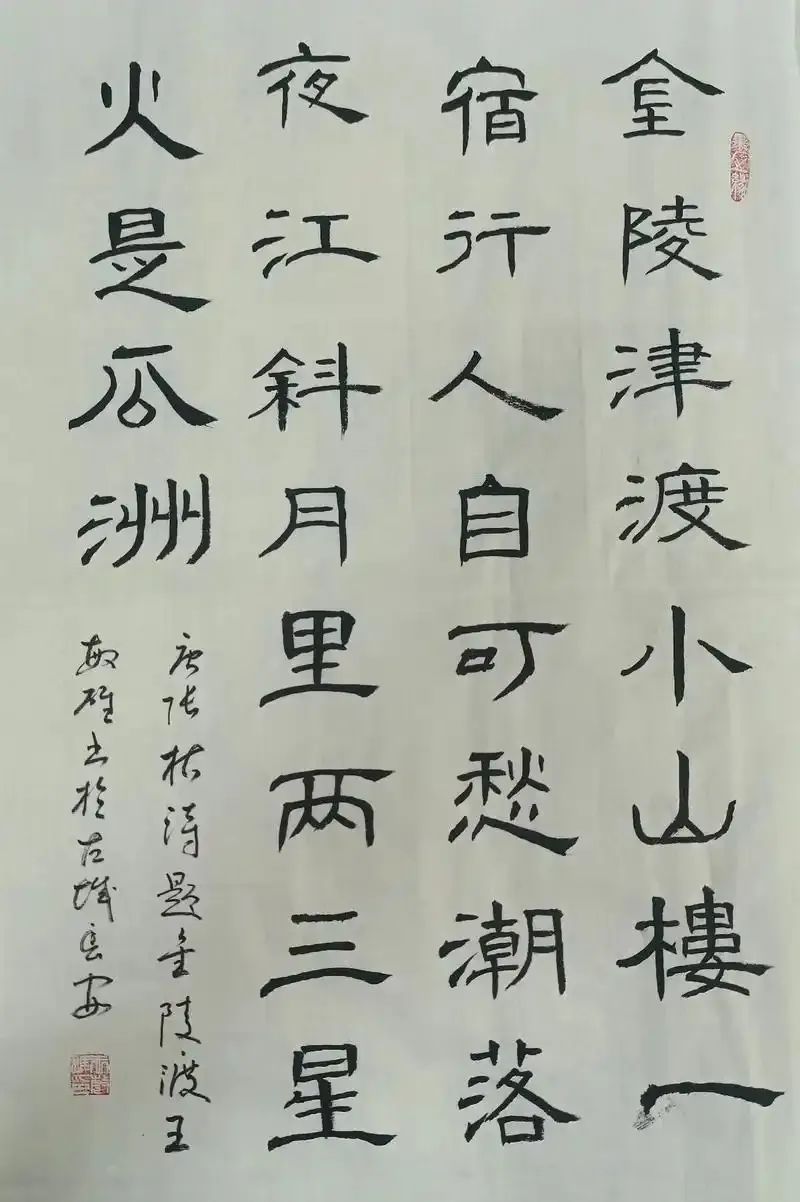 金陵津渡小山樓一
宿行人自可愁潮落
夜江斜月里两三星
火是瓜洲
唐张祜诗题金陵渡王
敏雄书於古城长安